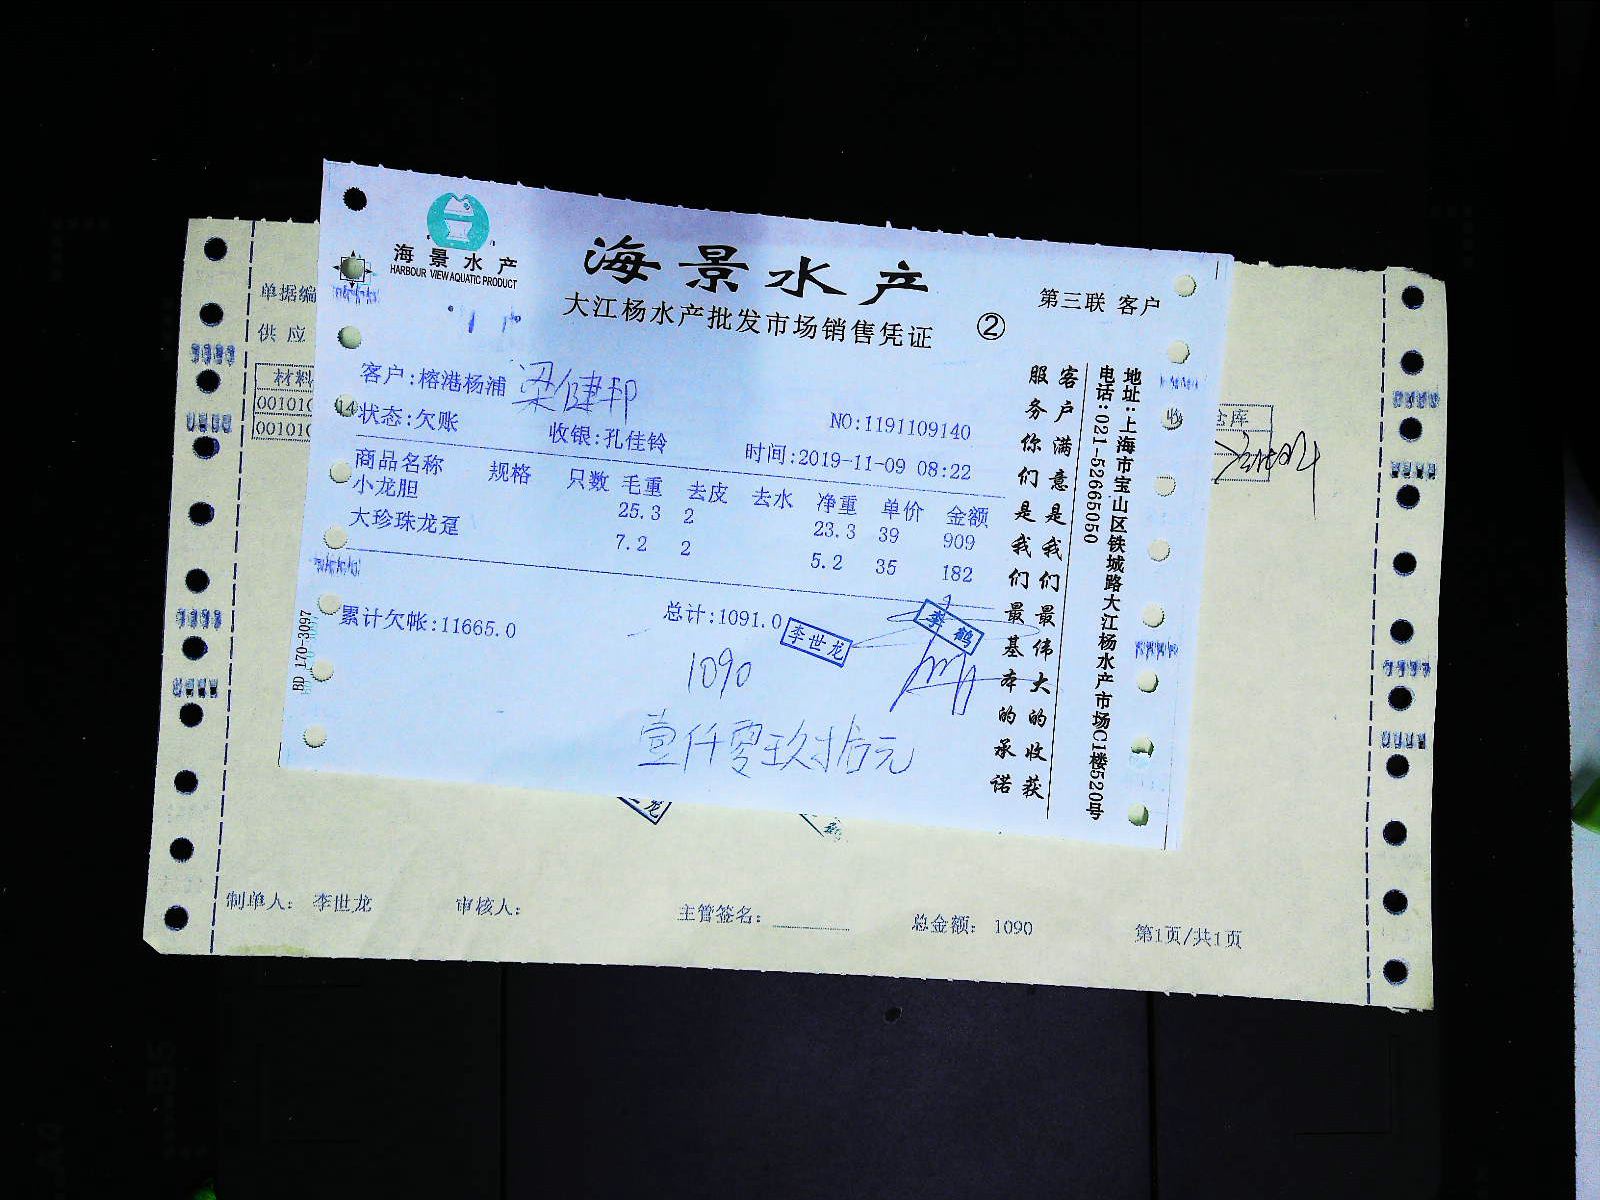 海景水产
HARBOUR VIEW AQUATIC PRODUCT
海景水产
大江杨水产批发市场销售凭证 ②
第三联 客户
客户:榕港杨浦 梁健邦
NO:1191109140
状态:欠账 收银:孔佳铃 时间:2019-11-09 08:22
商品名称 规格 只数 毛重 去皮 去水 净重 单价 金额
小龙胆 25.3 2 23.3 39 909
大珍珠龙趸 7.2 2 5.2 35 182
累计欠帐:11665.0 总计:1091.0
李世龙
李鹤
1090
壹仟零玖拾元
客户满意是我们最伟大的收获
服务你们是我们最基本的承诺
地址:上海市宝山区铁城路大江杨水产市场C1楼520号
电话:021-52665050
BD 170-3097
单据编
供应
材料
00101
00101
仓库
制单人: 李世龙 审核人: 主管签名: 总金额: 1090 第1页/共1页